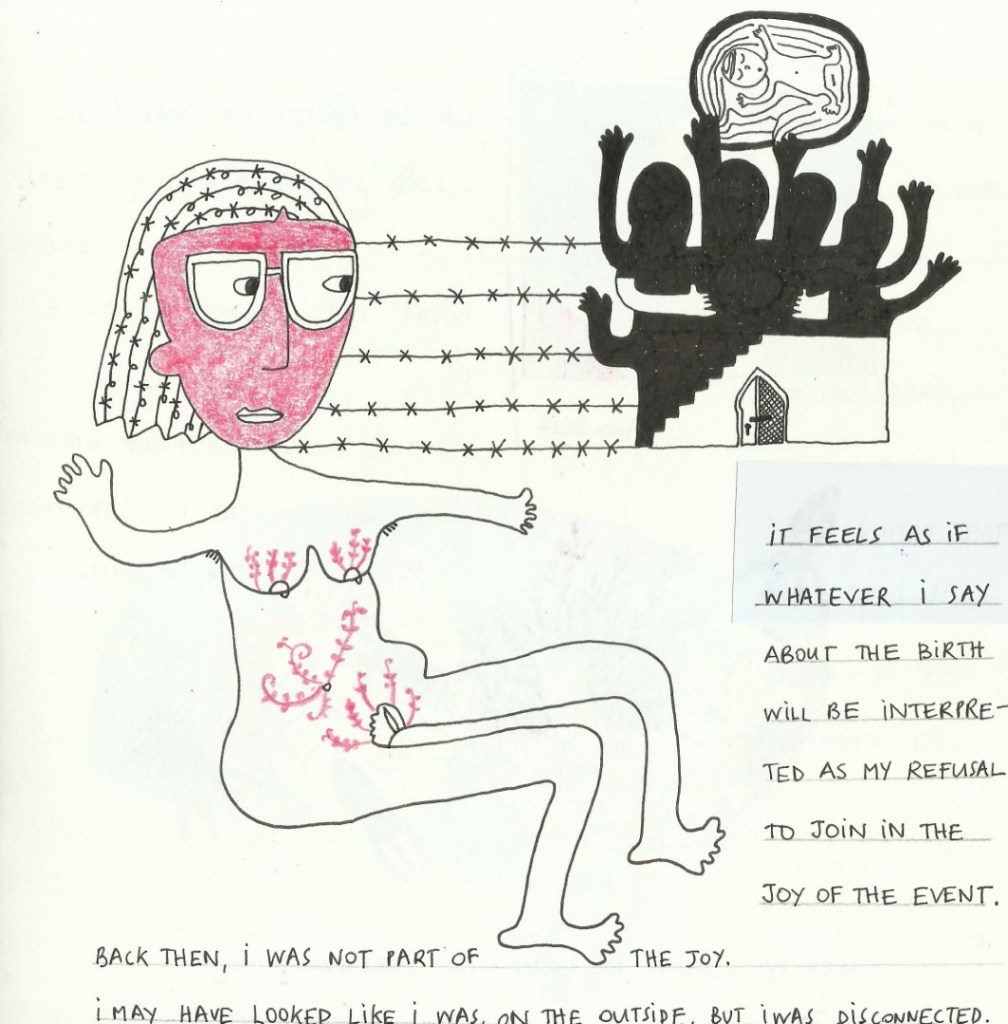 iT FEELS AS iF
WHATEVER i SAY
ABOUT THE BiRTH
WiLL BE iNTERPRE-
TED AS MY REFUSAL
TO JOiN iN THE
JOY OF THE EVENT.
BACK THEN, i WAS NOT PART OF THE JOY.
i MAY HAVE LOOKED LiKE i WAS, ON THE OUTSiDE, BUT i WAS DiSCONNECTED.